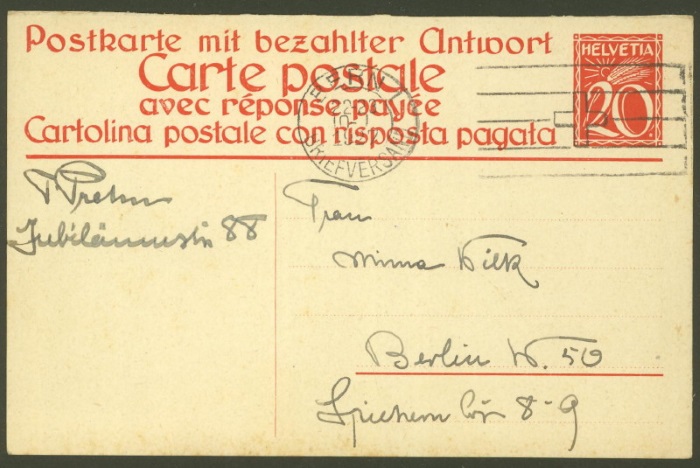 Postkarte mit bezahlter Antwort
Carte postale
avec réponse payée
Cartolina postale con risposta pagata
HELVETIA
20
BERN
BRIEFVERSAND
Prehn
Jubiläumsstr 88
Frau
Minna Wilk
Berlin W. 50
8-9